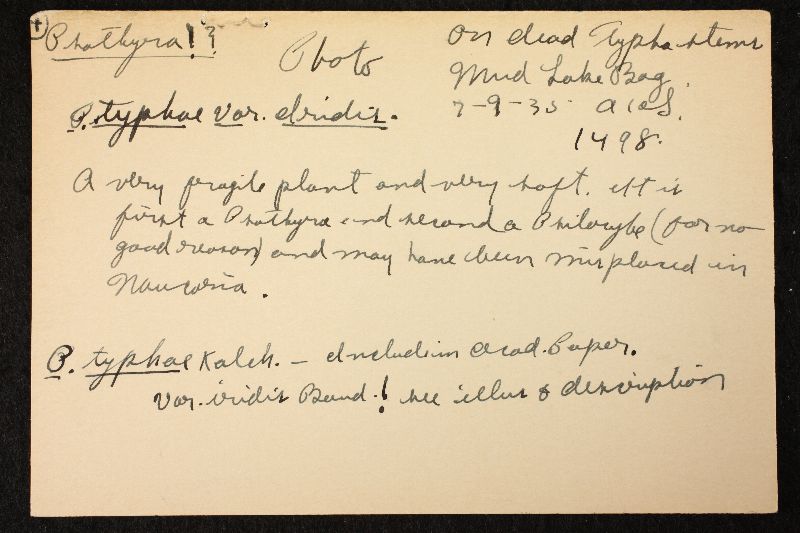 Psathyra!?
Photo
On dead Typha stems
Mud Lake Bog.
7-9-35 A.H.S.
1498.
P. typhae var. Iridis.
A very fragile plant and very soft. It is
first a Psathyra and second a Psilocybe (for no
good reason) and may have been misplaced in
Naucoria.
P. typhae Kalch. — Include in Acad. Paper.
var. iridis Boud.! see illus & description